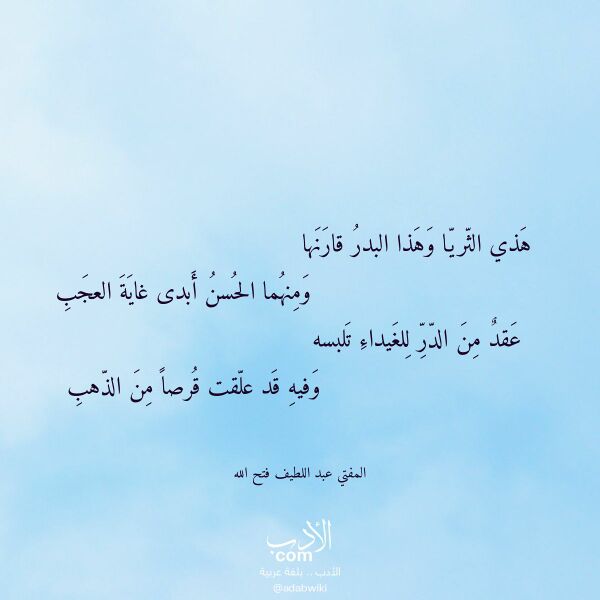 هَذي الثّريّا وَهَذا البدرُ قارَنَها
وَمِنهُما الحُسنُ أَبدى غايَةَ العجَبِ
عَقدٌ مِنَ الدّرِّ لِلغَيداءِ تَلبسه
وَفيهِ قَد علّقت قُرصاً مِنَ الذّهبِ
المفتي عبد اللطيف فتح الله
الأدب
com
الأدب .. بلغة عربية
@adabwiki